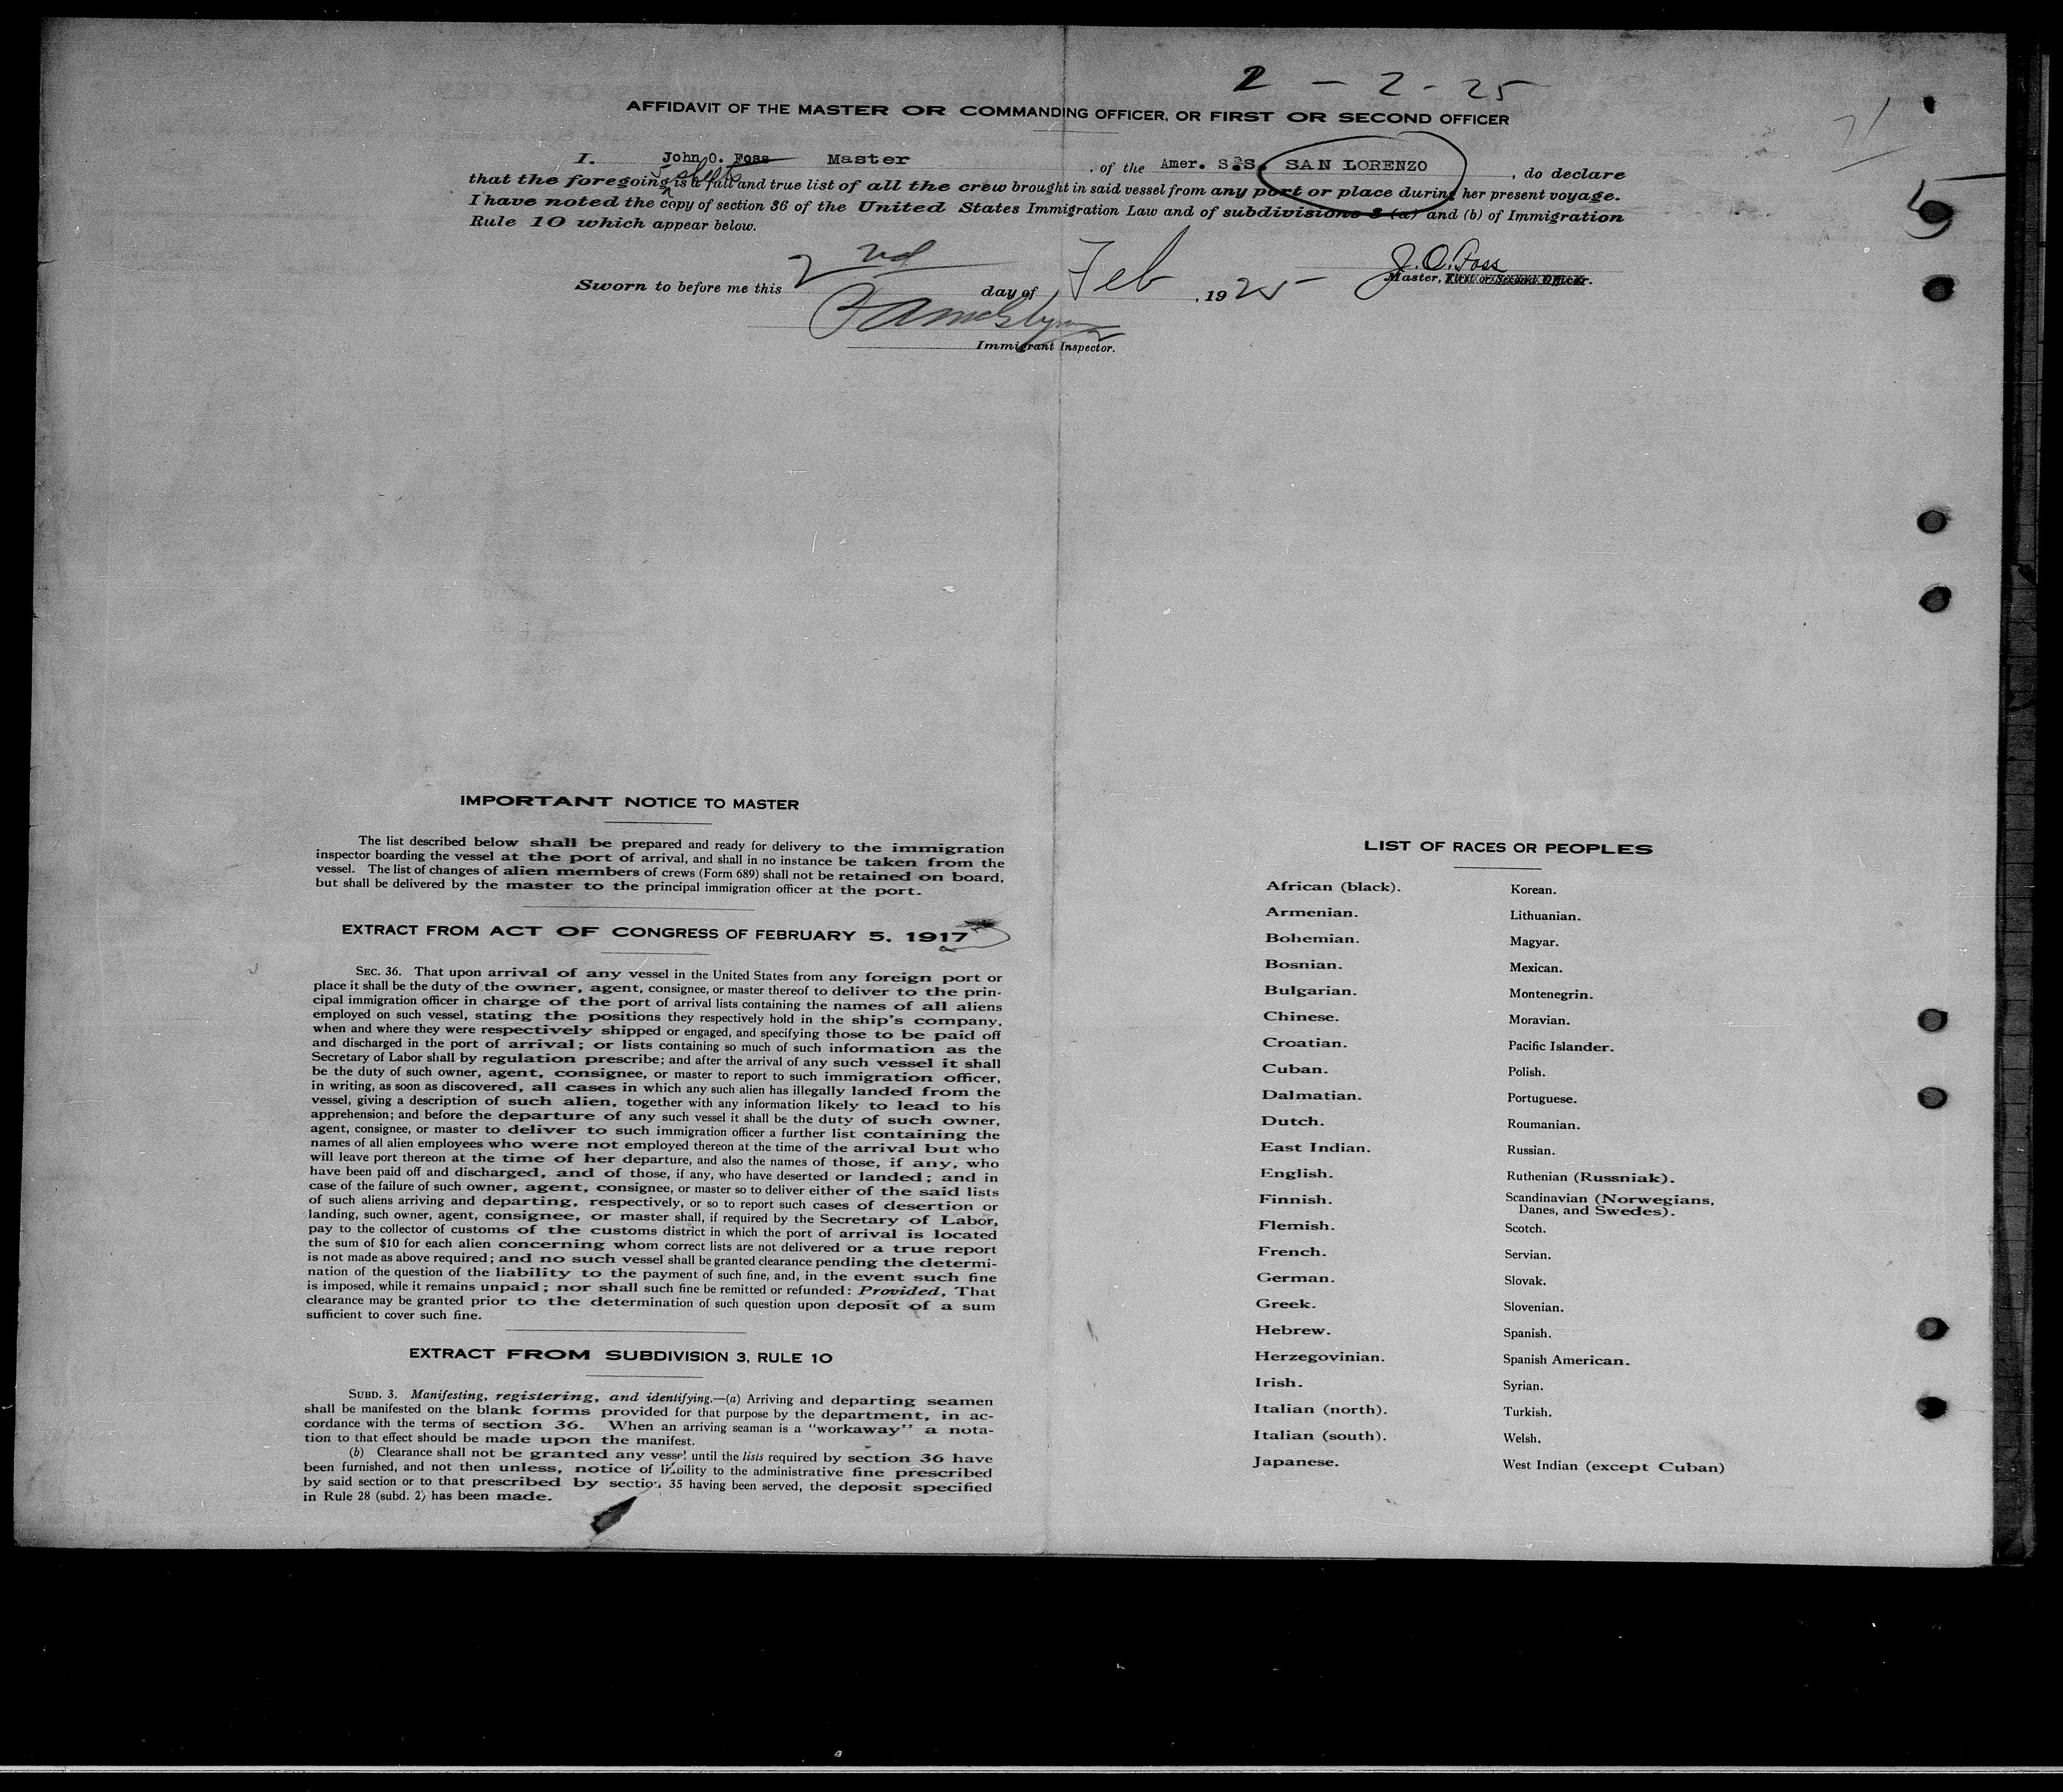 2 - 2 - 25
AFFIDAVIT OF THE MASTER OR COMMANDING OFFICER, OR FIRST OR SECOND OFFICER
I, John O. Foss Master, of the Amer. S.S. SAN LORENZO, do declare
5 sheets
that the foregoing is a full and true list of all the crew brought in said vessel from any port or place during her present voyage.
I have noted the copy of section 36 of the United States Immigration Law and of subdivisions 3 (a) and (b) of Immigration
Rule 10 which appear below.
5
J. O. Foss
Sworn to before me this 2nd day of Feb, 1925
Master, First or Second Officer.
Immigrant Inspector.
IMPORTANT NOTICE TO MASTER
The list described below shall be prepared and ready for delivery to the immigration
inspector boarding the vessel at the port of arrival, and shall in no instance be taken from the
vessel. The list of changes of alien members of crews (Form 689) shall not be retained on board,
but shall be delivered by the master to the principal immigration officer at the port.
EXTRACT FROM ACT OF CONGRESS OF FEBRUARY 5, 1917
SEC. 36. That upon arrival of any vessel in the United States from any foreign port or
place it shall be the duty of the owner, agent, consignee, or master thereof to deliver to the prin-
cipal immigration officer in charge of the port of arrival lists containing the names of all aliens
employed on such vessel, stating the positions they respectively hold in the ship's company,
when and where they were respectively shipped or engaged, and specifying those to be paid off
and discharged in the port of arrival; or lists containing so much of such information as the
Secretary of Labor shall by regulation prescribe; and after the arrival of any such vessel it shall
be the duty of such owner, agent, consignee, or master to report to such immigration officer,
in writing, as soon as discovered, all cases in which any such alien has illegally landed from the
vessel, giving a description of such alien, together with any information likely to lead to his
apprehension; and before the departure of any such vessel it shall be the duty of such owner,
agent, consignee, or master to deliver to such immigration officer a further list containing the
names of all alien employees who were not employed thereon at the time of the arrival but who
will leave port thereon at the time of her departure, and also the names of those, if any, who
have been paid off and discharged, and of those, if any, who have deserted or landed; and in
case of the failure of such owner, agent, consignee, or master so to deliver either of the said lists
of such aliens arriving and departing, respectively, or so to report such cases of desertion or
landing, such owner, agent, consignee, or master shall, if required by the Secretary of Labor,
pay to the collector of customs of the customs district in which the port of arrival is located
the sum of $10 for each alien concerning whom correct lists are not delivered or a true report
is not made as above required; and no such vessel shall be granted clearance pending the determi-
nation of the question of the liability to the payment of such fine, and, in the event such fine
is imposed, while it remains unpaid; nor shall such fine be remitted or refunded: Provided, That
clearance may be granted prior to the determination of such question upon deposit of a sum
sufficient to cover such fine.
EXTRACT FROM SUBDIVISION 3, RULE 10
SUBD. 3. Manifesting, registering, and identifying.—(a) Arriving and departing seamen
shall be manifested on the blank forms provided for that purpose by the department, in ac-
cordance with the terms of section 36. When an arriving seaman is a "workaway" a nota-
tion to that effect should be made upon the manifest.
(b) Clearance shall not be granted any vessel until the lists required by section 36 have
been furnished, and not then unless, notice of liability to the administrative fine prescribed
by said section or to that prescribed by section 35 having been served, the deposit specified
in Rule 28 (subd. 2) has been made.
LIST OF RACES OR PEOPLES
African (black).
Armenian.
Bohemian.
Bosnian.
Bulgarian.
Chinese.
Croatian.
Cuban.
Dalmatian.
Dutch.
East Indian.
English.
Finnish.
Flemish.
French.
German.
Greek.
Hebrew.
Herzegovinian.
Irish.
Italian (north).
Italian (south).
Japanese.
Korean.
Lithuanian.
Magyar.
Mexican.
Montenegrin.
Moravian.
Pacific Islander.
Polish.
Portuguese.
Roumanian.
Russian.
Ruthenian (Russniak).
Scandinavian (Norwegians,
Danes, and Swedes).
Scotch.
Servian.
Slovak.
Slovenian.
Spanish.
Spanish American.
Syrian.
Turkish.
Welsh.
West Indian (except Cuban)